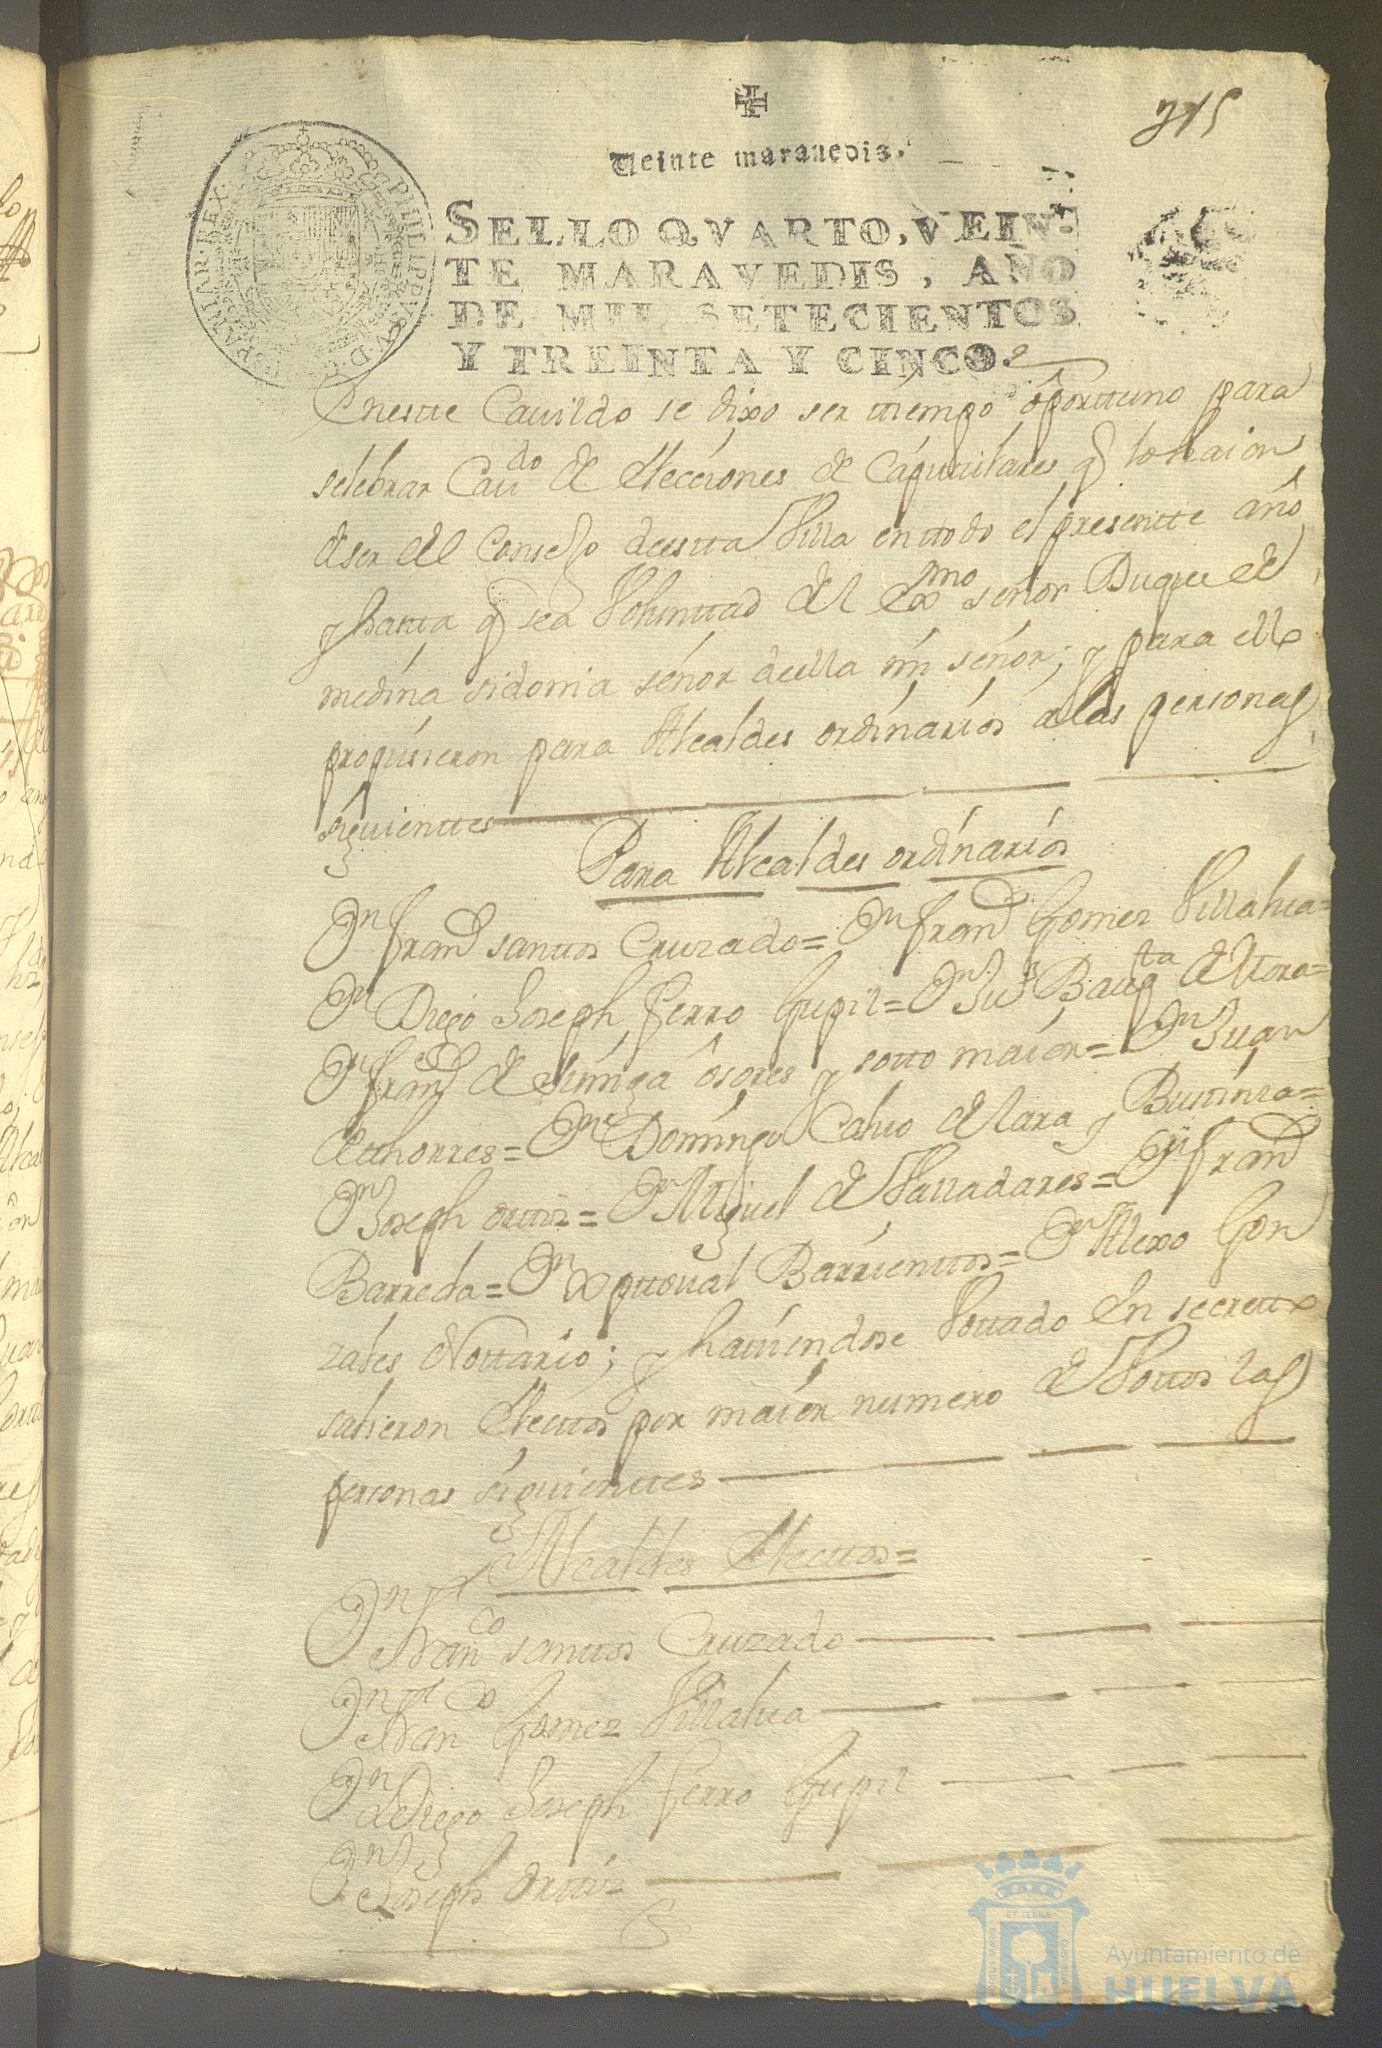 315
Veinte marauedis.
SELLO QVARTO, VEIN-
TE MARAVEDIS, AÑO
DE MIL SETECIENTOS
Y TREINTA Y CINCO.
PHILIPPVS V D
HISPANIAR REX
Enestte Cauildo se dixo ser ttiempo oporttuno para
selebrar Cau.do de elecciones de Capittulares q lo haian
de ser del Consejo deestta Villa enttodo el presentte año
y hasta q sea Volunttad del Exmo señor Duque de
medina sidonia señor deella mi señor; y para ello
propusieron para Alcaldes ordinarios a las personas
siguienttes
Para Alcaldes ordinarios
Dn franco santtos Cruzado= Dn franco Gomez Villalua=
Dn Diego Joseph fierro Gupil= Dn Ju. Bautta de Mora=
Dn franco de suniga osores y sotto maior= Dn Juan
de tthorres= Dn Domingo Caluo de lara y
Dn Joseph orttiz= Dn Miguel de Valladares= Dn franco
Barreda= Dn Xpttoual Barrienttos= Dn Alexo Gon
zales Nottario; y hauiendose Vottado en secretto
salieron electtos por maior numero de Vottos las
personas siguienttes
Alcaldes electtos=
Dn Franco santtos Cruzado
Dn Franco Gomez Villalua
Dn Diego Joseph fierro Gupil
Dn Joseph orttiz
Ayuntamiento de
HUELVA